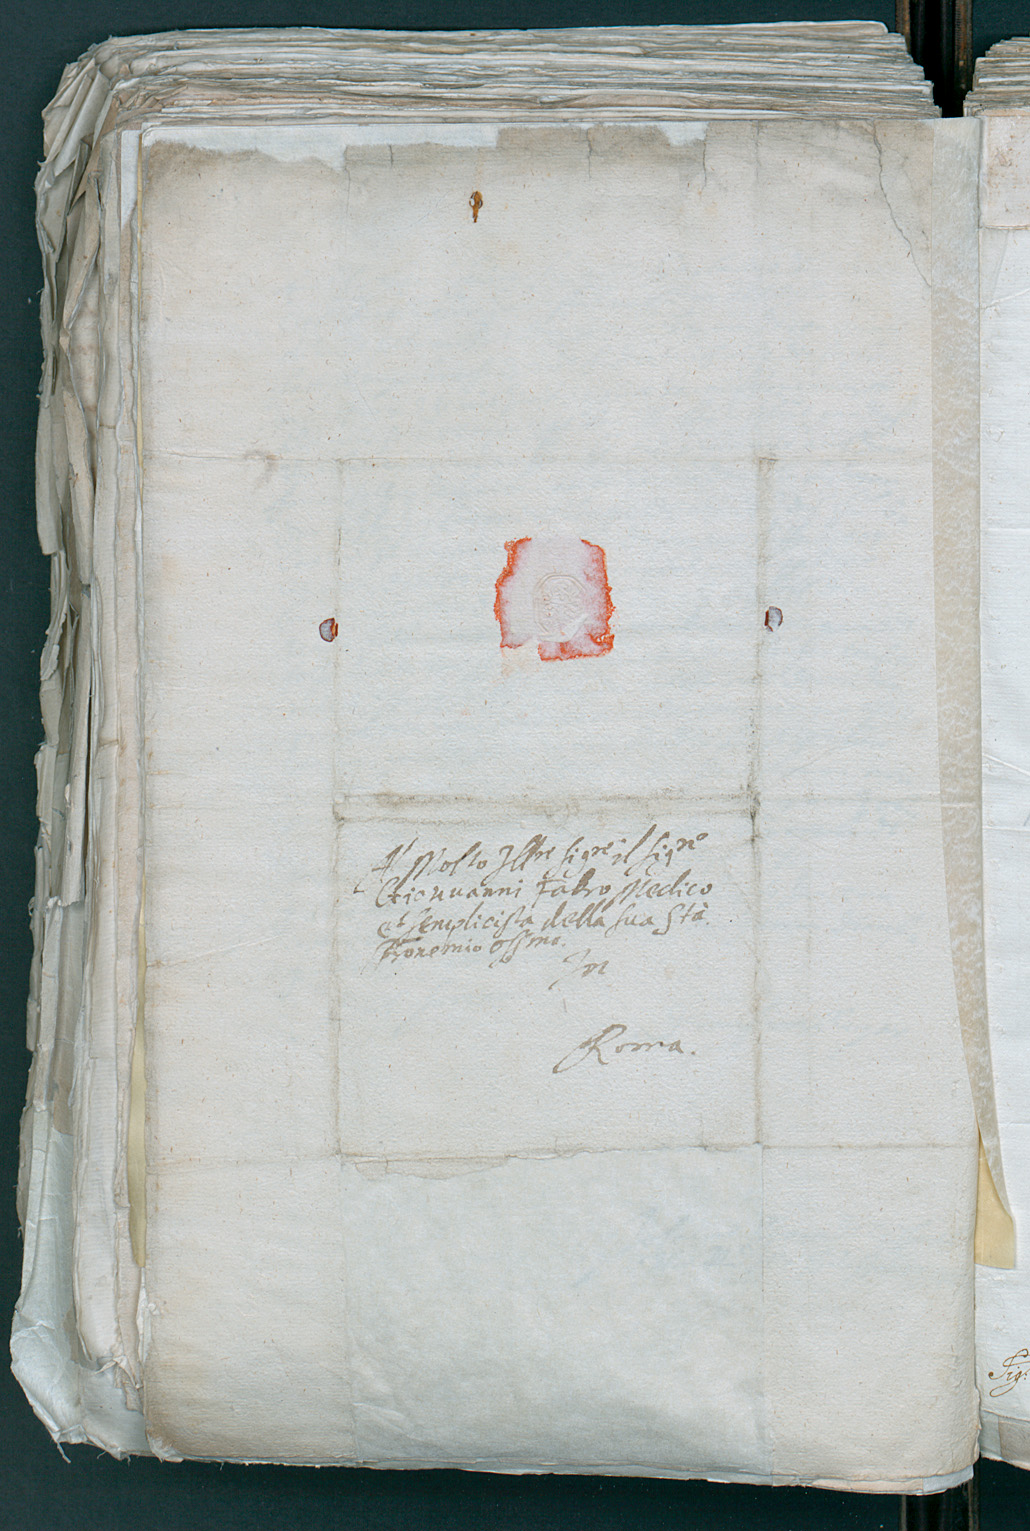 Al Molto Illre sigre il sigro
Giouuanni Fabro Medico
et semplicista della sua Stà.
ossmo.
In
Roma.
Sig: